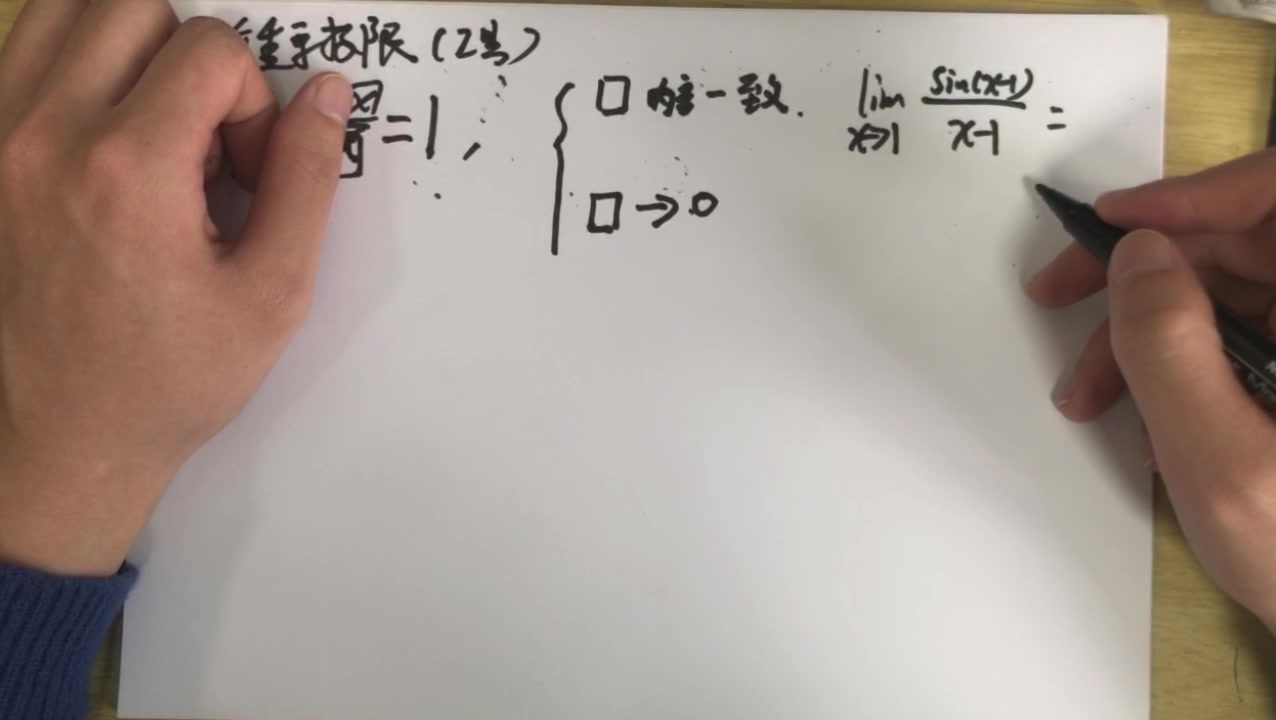 重要极限(2类)
=1,
{ □ 内容一致.
□→0
lim x→1 sin(x-1)/x-1 =